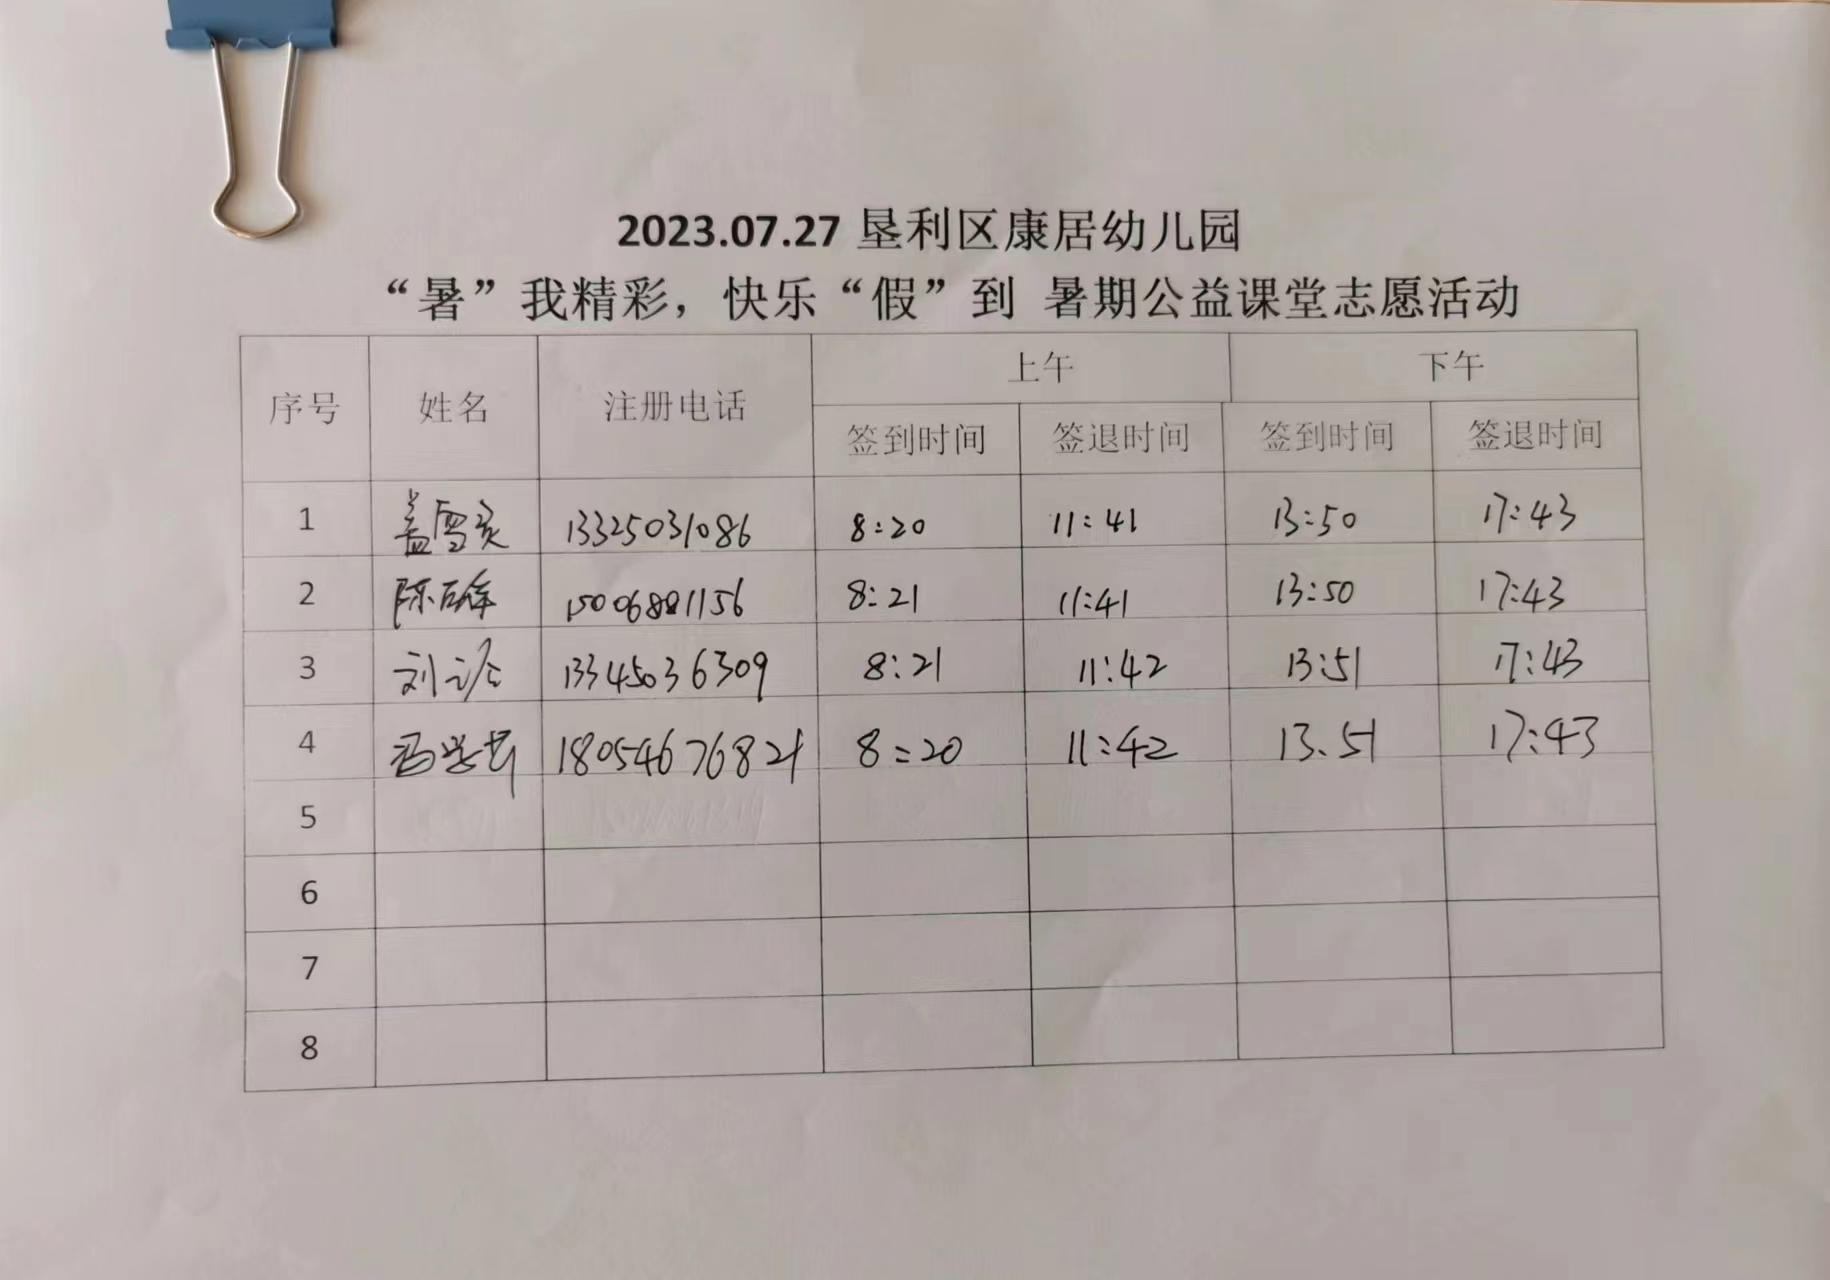 2023.07.27 垦利区康居幼儿园
“暑”我精彩，快乐“假”到 暑期公益课堂志愿活动
序号 姓名 注册电话 上午 下午
签到时间 签退时间 签到时间 签退时间
1 盖雪 13325031086 8:20 11:41 13:50 17:43
2 陈 15006881156 8:21 11:41 13:50 17:43
3 刘 13345036309 8:21 11:42 13:51 17:43
4 冯学 18054676821 8:20 11:42 13.51 17:43
5
6
7
8